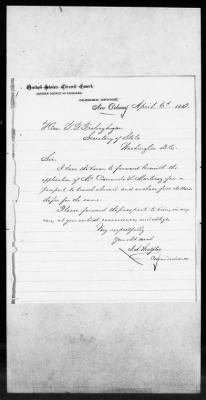 United States Circuit Court,
EASTERN DISTRICT OF LOUISIANA
CLERK'S OFFICE
New Orleans, April 6th 188
Hon. F. F. Frelinghuysen
Secretary of State
Washington D.C.
Sir.
I have the honor to forward herewith the
application of Mr. Martinez for a
passport to travel abroad and enclose five dollars
for the same.
Please forward the passport to him, in my
care, at your earliest convenience, and oblige
Very respectfully
Your obt servt